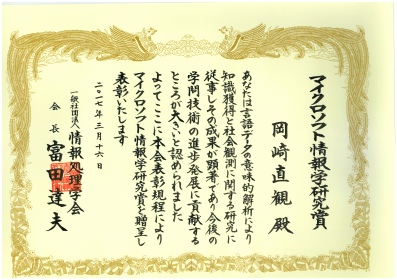 マイクロソフト情報学研究賞
岡崎直観 殿
あなたは言語データの意味的解析により
知識獲得と社会観測に関する研究に
従事しその成果が顕著であり今後の
学問技術の進歩発展に貢献する
ところが大きいと認められました
よってここに本会表彰規程により
マイクロソフト情報学研究賞を贈呈し
表彰いたします
二〇一七年三月十六日
一般社団法人 情報処理学会
会長 富田達夫